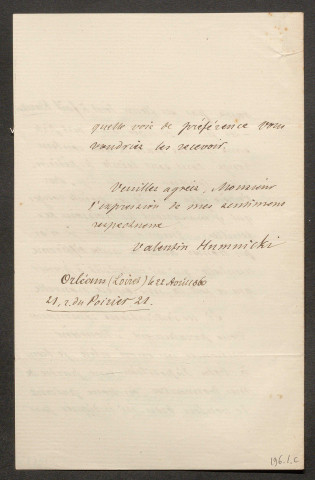 quelle voie de préférence vous
voudriez les recevoir.
Veuillez agréer, Monsieur
l'expression de mes sentimens
respectueux
Valentin Humnicki
Orléans (Loiret) le 22 Août
21, r. du Poirier 21.
196.1.c